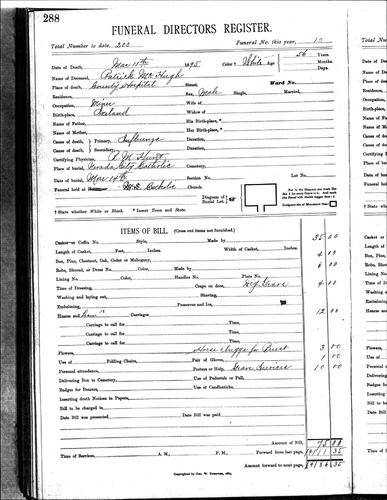 288
FUNERAL DIRECTORS REGISTER.
Total Number to date, 300 Funeral No. this year, 10
Date of Death, Mar 11th 1895 Color † White Age 56 Years. Months. Days.
Name of Deceased, Patrick McHugh
Place of death, County Hospital Street. Ward No.
Residence, Sex, Male Single, Married,
Occupation, Miner Wife of
Birth-place, Ireland Widow of
Name of Father, His Birth-place, *
Name of Mother, Her Birth-place, *
Cause of death Primary, Influenza Duration,
Secondary, Duration,
Certifying Physician, R M Hunt
Place of burial, Nevada City Catholic Cemetery,
Date of burial, Mar 14th Section No. Lot No.
Funeral held at Catholic Church. Diagram of Burial Lot
† State whether White or Black. * Insert Town and State.
ITEMS OF BILL. (Cross out items not furnished.)
Casket or Coffin No. Style, Made by 35 00
Length of Casket, Feet, Inches. Width of Casket, Inches.
Box, Pine, Chestnut, Oak, Cedar or Mahogany, 4 00
Robe, Shroud, or Dress No. Color, Made by 6 00
Lining No. Color, Handles No. Plate No.
Time of Dressing, Crape on door, 4 00
Washing and laying out, Shaving,
Embalming, Preserver and Ice,
Hearse and Carriages 12 00
Carriage to call for Time,
Carriage to call for Time,
Carriage to call for Time,
Carriage to call for Time,
Flowers, Horse & buggy for Priest 3 00
Use of Folding Chairs, Pair of Gloves, 1 00
Personal attendance, Porters or Help, Grave Services 10 00
Delivering Box to Cemetery, Use of Pedestals or Pall,
Badges for Bearers, Use of Candlesticks,
Inserting death Notices in Papers,
Bill to be charged to
Date Bill was presented Date Bill was paid
Amount of Bill, 75 00
Time of Services, A. M., P. M., Forward from last page,
Amount forward to next page,